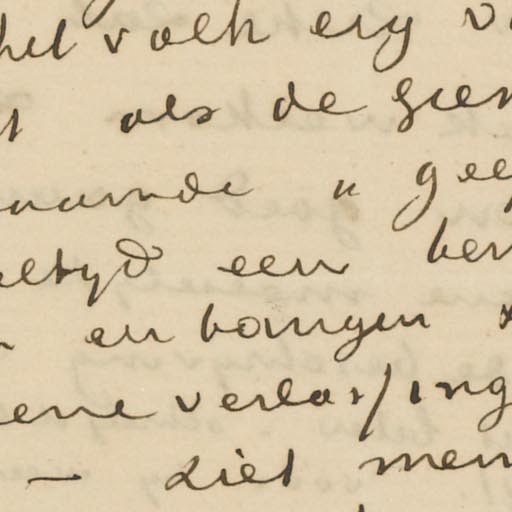 het volk erg v
t als de gren
naamde " gee
altyd een ben
en bomen
eene verlossing
— ziet men